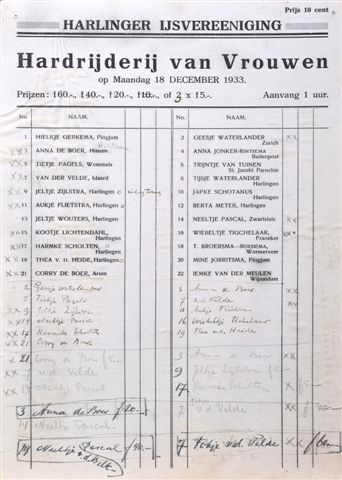 Prijs 10 cent
HARLINGER IJSVEREENIGING
Hardrijderij van Vrouwen
op Maandag 18 DECEMBER 1933.
Prijzen: f60.-, f40.-, f20.-, f10.-, of 3 x f5.-. Aanvang 1 uur.
No. NAAM. No. NAAM.
1 HIELKJE GERKEMA, Pingjum
2 GEESJE WATERLANDER
Zurich
3 ANNA DE BOER, Hitsum
4 ANNA JONKER-RINTSEMA
Buitenpost
5 TIETJE PAGELS, Wommels
6 TRIJNTJE VAN TUINEN
St. Jacobi Parochie
7 VAN DER VELDE, Idaard
8 TIJSJE WATERLANDER
Harlingen
9 JELTJE ZIJLSTRA, Harlingen
10 JAPKE SCHOTANUS
Harlingen
11 AUKJE FLIETSTRA, Harlingen
12 BERTA METER, Harlingen
13 JELTJE WOUTERS, Harlingen
14 NEELTJE PASCAL, Zwartsluis
15 KOOTJE LICHTENDAHL,
Harlingen
16 WIEBELTJE TIGCHELAAR,
Franeker
17 HARMKE SCHOLTEN,
Harlingen
18 T. BROERSMA-ROEDEMA,
Wormerveer
19 THEA V. D. HEIDE, Harlingen
20 MINE JORRITSMA, Pingjum
21 CORRY DE BOER, Arum
22 IEMKE VAN DER MEULEN
Wijnaldum
2 Geesje Waterlander
3 Anna de Boer
5 Tietje Pagels
7 v.d. Velde
9 Jeltje Zijlstra
11 Aukje Flietstra
14 Neeltje Pascal
16 Wiebeltje Tichelaar
17 Harmke Scholten
19 Thea v.d. Heide
21 Corry de Boer
21 Corry de Boer f5.-
3 Anna de Boer
7 v.d. Velde
9 Jeltje Zijlstra f5.-
14 Neeltje Pascal
17 Harmke Scholten f5.-
3 Anna de Boer f20.-
7 v.d. Velde
14 Neeltje Pascal
14 Neeltje Pascal f40.-
7 v.d. Velde f60.-